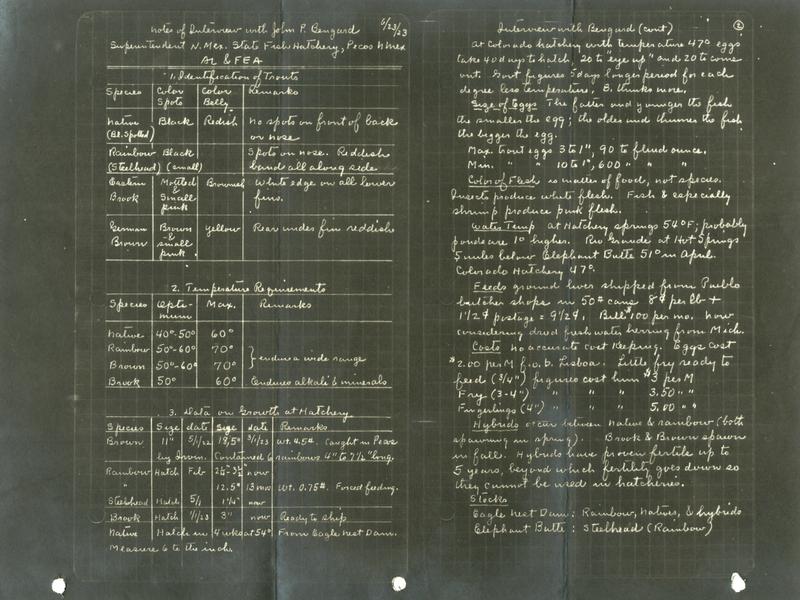 Notes of Interview with John P. Bengard 6/23/23
Superintendent N. Mex. State Fish Hatchery, Pecos N Mex
AL & FEA
1. Identification of Trouts
Species Color Spots Color Belly Remarks
Native (Bl. Spotted) Black Redish no spots on front of back or nose
Rainbow (Steelhead) Black (small) Spots on nose. Reddish band all along side
Eastern Brook Mottled & Small pink Brownish White edge on all lower fins.
German Brown Brown & small pink Yellow Rear under fin reddish
2. Temperature Requirements
Species Optimum Max. Remarks
Native 40°-50° 60°
Rainbow 50°-60° 70°
Brown 50°-60° 70° } endure a wide range
Brook 50° 60° Endures alkali & minerals
3. Data on Growth at Hatchery
Species Size date Size date Remarks
Brown 11" 5/1/22 18.5" 3/1/23 Wt. 4.5#. Caught in Pecos
by Irvin. Contained 6 rainbows 4" to 7 1/2" long.
Rainbow Hatch Feb 2 1/2"-3 1/2" now
" 12.5" 13 mos Wt. 0.75#. Forced feeding.
Steelhead Hatch 5/1 1 1/4" now
Brook Hatch 1/1/23 3" now Ready to ship
Native Hatch in 4 wks at 54°. From Eagle Nest Dam.
Measure 6 to the inch.
Interview with Bengard (cont) 2
At Colorado hatchery with temperature 47° eggs
take 40 days to hatch, 20 to "eye up" and 20 to come
out. Govt figures 5 days longer period for each
degree less temperature, B. thinks more.
Size of Eggs The fatter and younger the fish
the smaller the egg; the older and thinner the fish
the bigger the egg.
Max. trout eggs 3 to 1", 90 to fluid ounce.
Min. " " 10 to 1", 600 " " "
Color of Flesh is matter of food, not species.
Insects produce white flesh. Fish & especially
shrimp produce pink flesh.
Water Temp at Hatchery springs 54° F; probably
ponds are 1° higher. Rio Grande at Hot Springs
5 miles below Elephant Butte 51° in April.
Colorado Hatchery 47°.
Feeds ground liver shipped from Pueblo
butcher shops in 50# cans 8¢ per lb +
1 1/2¢ postage = 9 1/2¢. Bill $100 per mo. Now
considering dried freshwater herring from Mich.
Costs no accurate cost keeping. Eggs cost
$2.00 per M f.o.b. Lisboa. Little fry ready to
feed (3/4") figures cost him $3 per M
Fry (3-4") " " " 3.50 " "
Fingerlings (4") " " " 5.00 " "
Hybrids occur between native & rainbow (both
spawning in spring). Brook & Brown spawn
in fall. Hybrids have proven fertile up to
5 years, beyond which fertility goes down so
they cannot be used in hatcheries.
Stocks
Eagle Nest Dam: Rainbow, Natives, & hybrids
Elephant Butte: Steelhead (Rainbow)